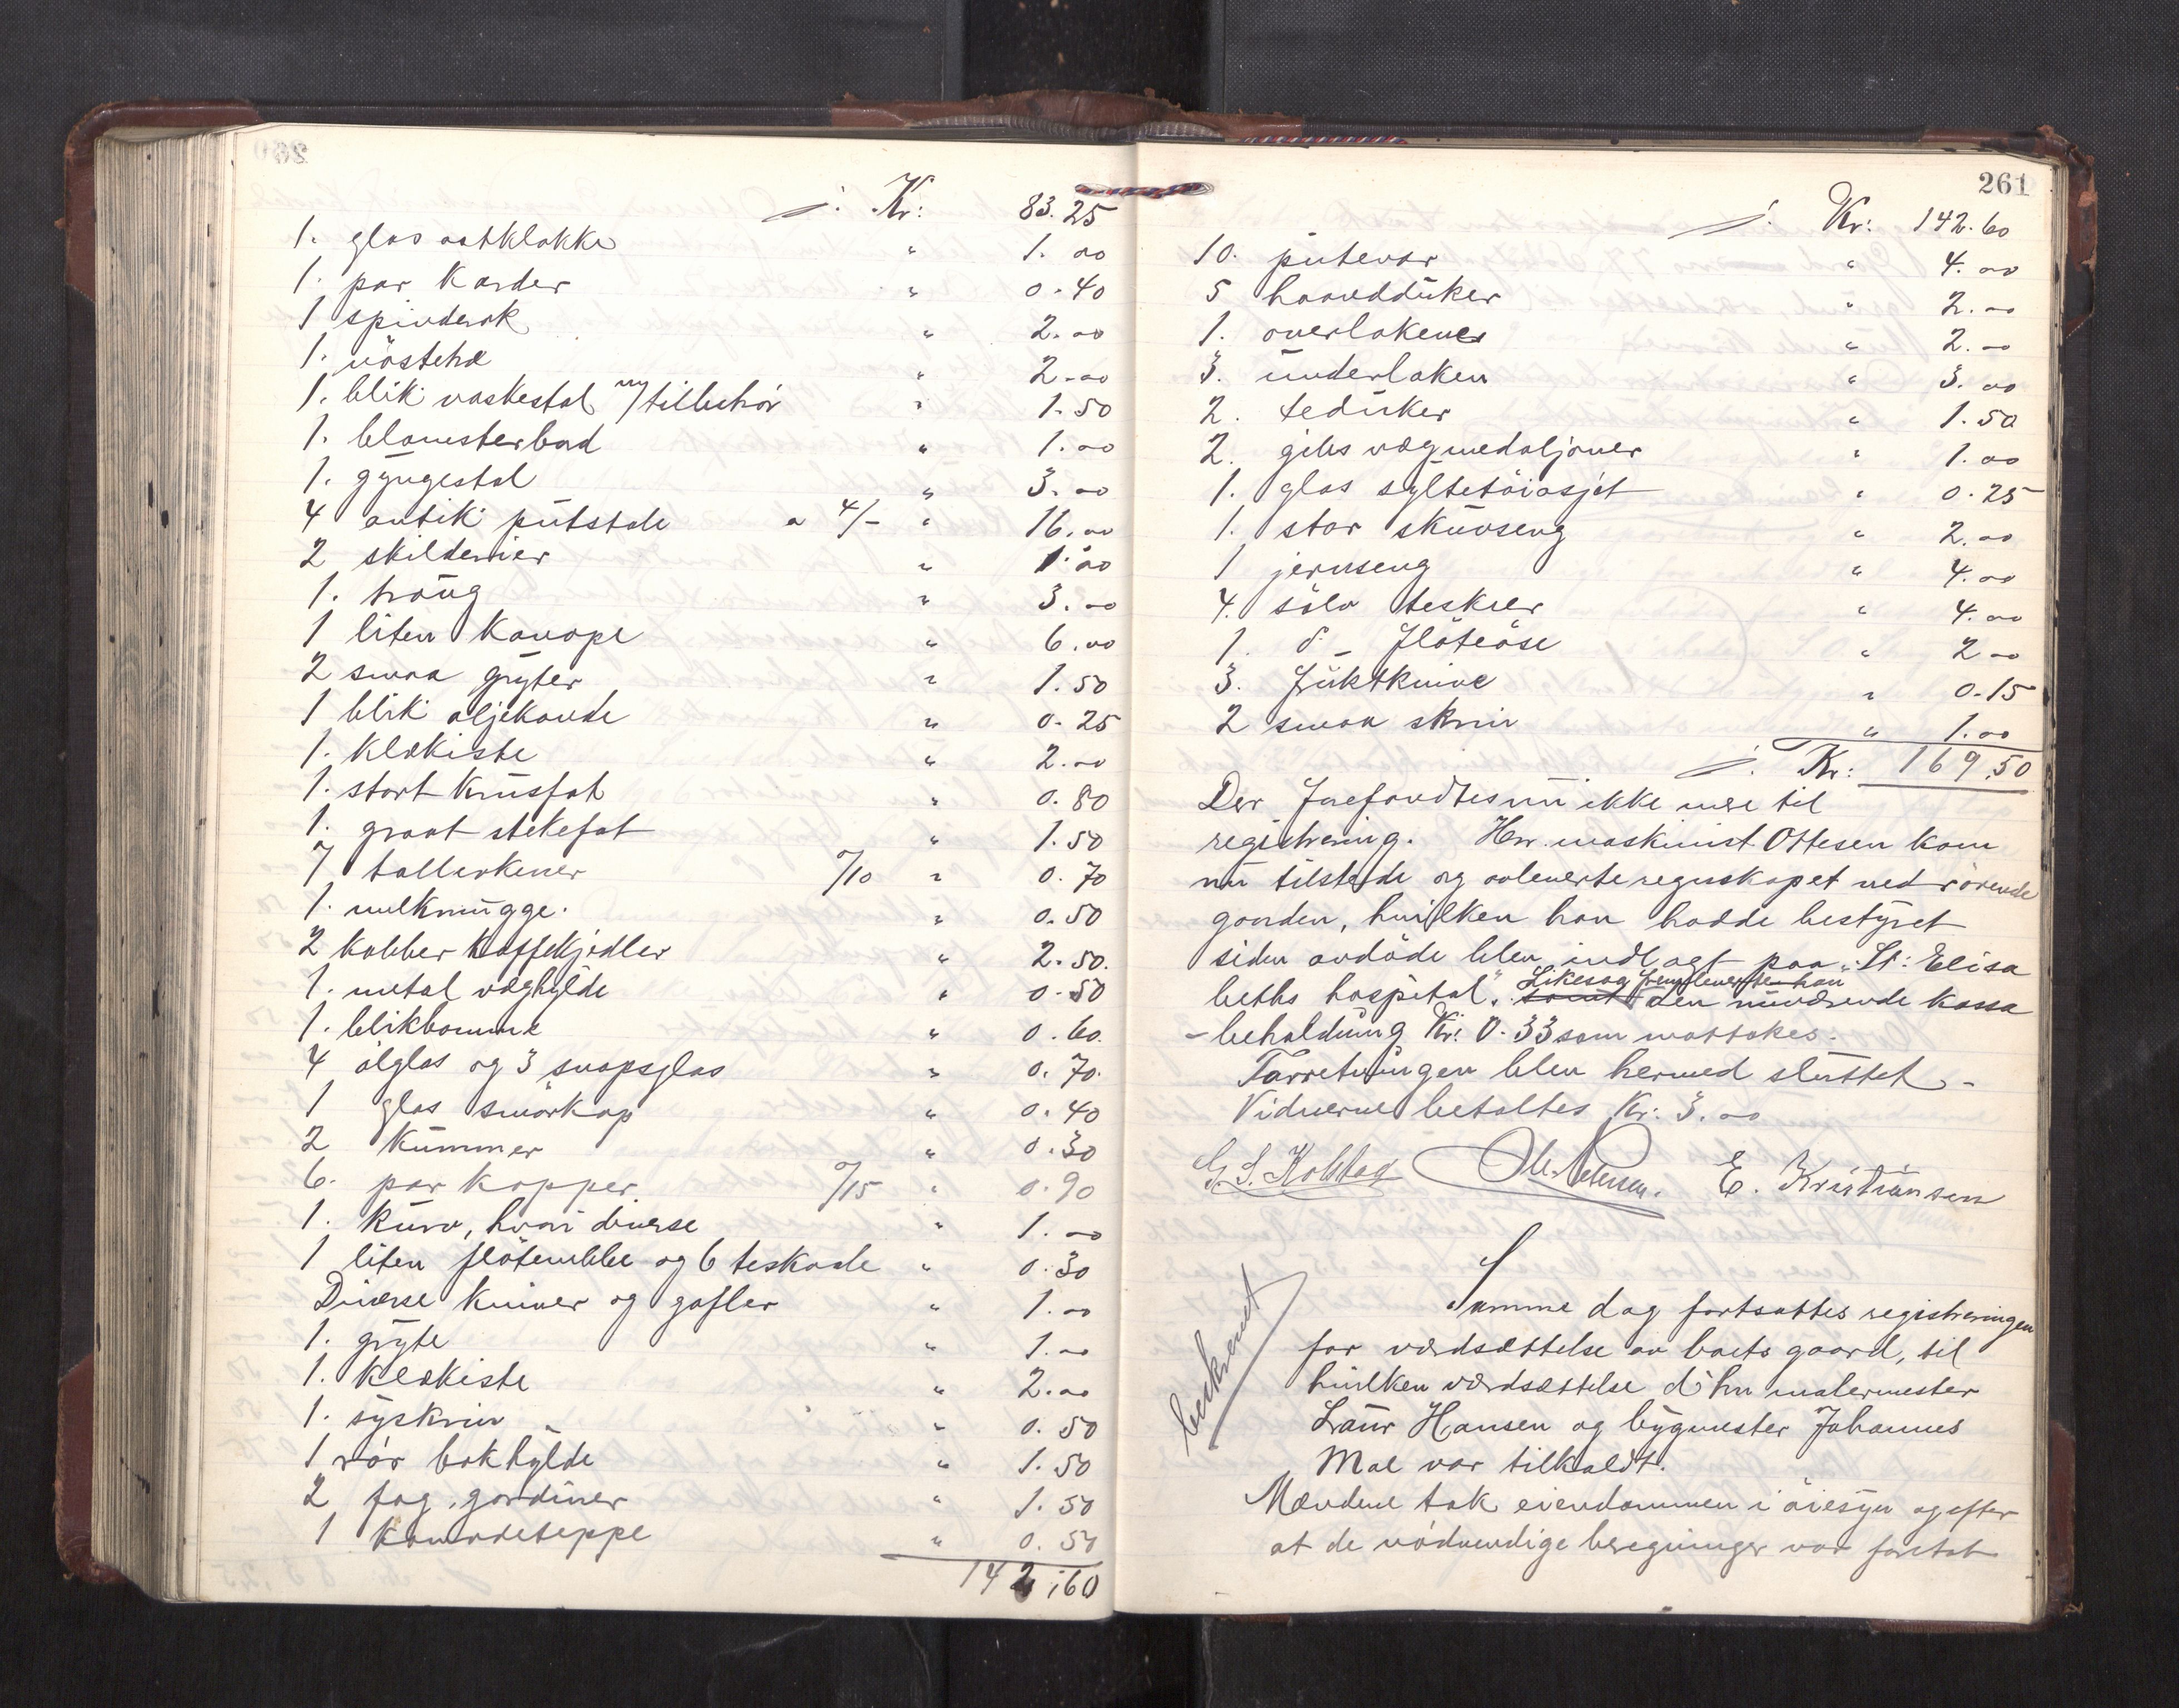 260
Kr: 83.25
1. glas ostklokke " 1.00
1. par Karder " 0.40
1 spinderok " 2.00
1. nöstetræ " 2.00
1. blik vaskestol m/tilbehör " 1.50
1. blomsterbord " 1.00
1. gyngestol " 3.00
4 antik putstole a 4/- " 16.00
2 skilderier " 1.00
1. traug " 3.00
1 liten Kanape " 6.00
2 smaa gryter " 1.50
1 blik oljekande " 0.25
1. Klækiste " 2.00
1. stort krusfat " 0.80
1. graat stekefat " 1.50
7 tallerkener 0/10 " 0.70
1. melkmugge. " 0.50
2 kobber kaffekjedler " 2.50.
1. metal væghylde " 0.50
1. blikbomme " 0.60.
4 ölglas og 3 snapsglas " 0.70.
1 glas smörkop " 0.40
2 Kummer " 0.30
6. par kopper 0/15 " 0.90
1. Kurv, hvori diverse " 1.00
1 liten flötenebbe og 6 teskade " 0.30
Diverse kniver og gafler " 1.00
1. gryte " 1.00
1. Klækiste " 2.00
1. syskrin " 0.50
1 rör bokhylde " 1.50
2 fag gardiner " 1.50
1 Komodeteppe " 0.50
142.60
261
Kr: 142.60
10. putevar " 4.00
5 haandduker " 2.00
1. overlakener " 2.00
3. underlaken " 3.00
2. teduker " 1.50
2. gibs vægmedaljoner " 1.00
1. glas syltetöiasjet " 0.25
1. stor skuvseng " 2.00
1 jernseng " 4.00
4. sölv teskeer " 4.00
1. d_ flöteöse " 2.00
3. fruktknive " 0.15
2 smaa skrin " 1.00
Kr: 169.50
Der forefandtes nu ikke mere til
registrering. Hrr. maskinist Ottesen kom
nu tilstede og avleverte regnskapet vedrörende
gaarden, hvilken han hadde bestyret
siden avdöde blev indlagt paa "St: Elisa
beths hospital". Likesaa fremleverte han
samt den nuværende kassa
-beholdning Kr: 0.33 som mottokes.
Forretningen blev hermed sluttet.-
Vidnerne betaltes Kr: 3.00
E. Kristiansen
Samme dag fortsattes registreringen
for værdsættelse av boets gaard, til
hvilken værdsættelse d'hrr malermester
Laur Hansen og bygmester Johannes
Moe var tilkaldt.
Mændene tok eiendommen i öiesyn og efter
at de nödvendige beregninger var foretat
beskrevet